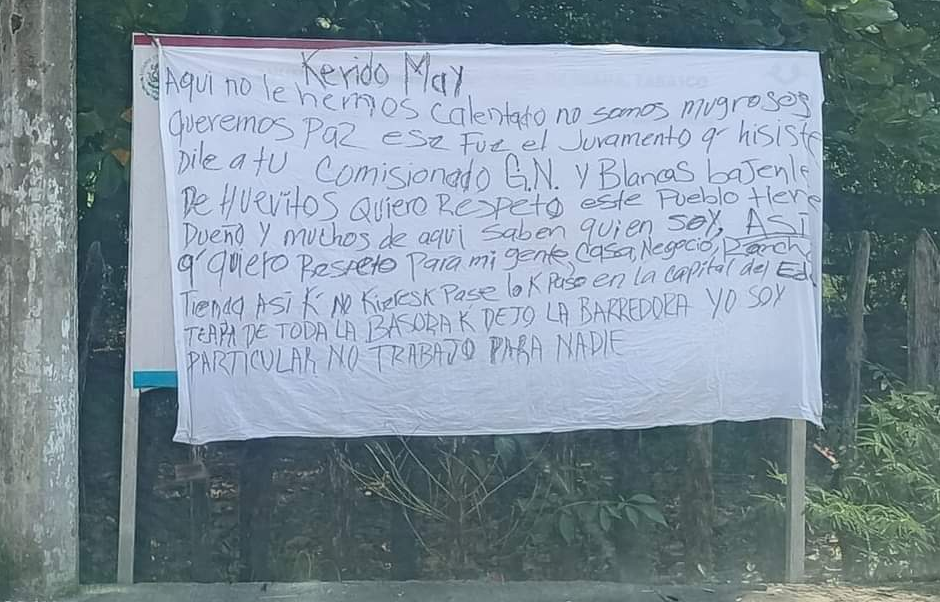 Kerido May
Aqui no le hemos calentado no somos mugrosos
queremos Paz ese Fue el Juramento q' hisiste
Dile a tu Comisionado G.N. y Blancas bajenle
De Huevitos Quiero Respeto este Pueblo tiene
Dueño y muchos de aqui saben quien soy, ASI
q' quiero Respeto Para mi gente, Casa, Negocio, Ranch
Tienda ASi K' No KieresK Pase lo K Paso en La capital del Ed.
TEAPA DE TODA LA BASORA K DEJO LA BARREDORA YO SOY
PARTICULAR NO TRABAJO PARA NADIE